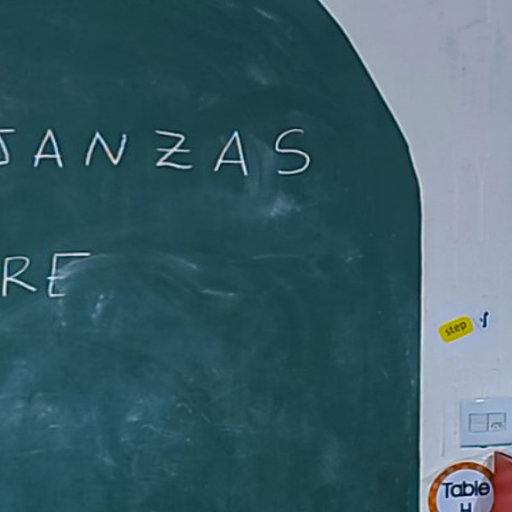 JANZAS
RE
step
Table
H